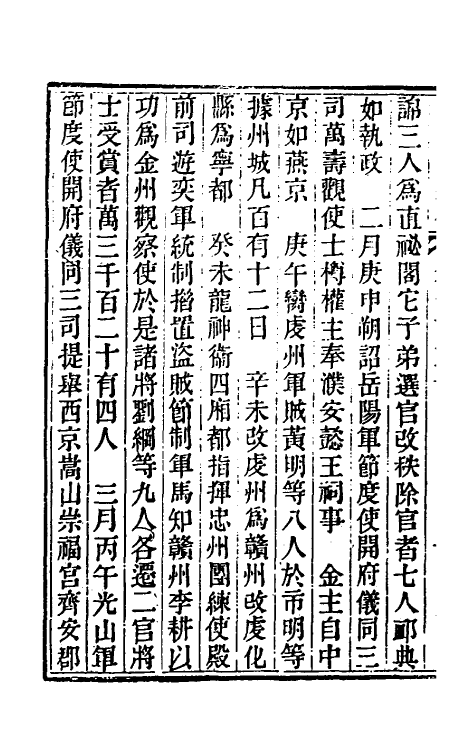 論三人爲直祕閣它子弟選官改秩除官者七人卹典
如執政　二月庚申朔詔岳陽軍節度使開府儀同三
司萬壽觀使士㒟權主奉濮安懿王祠事　金主自中
京如燕京　庚午臠虔州軍賊黃明等八人於市明等
據州城凡百有十二日　辛未改虔州爲贛州改虔化
縣爲寧都　癸未龍神衞四廂都指揮忠州團練使殿
前司遊奕軍統制措置盜賊節制軍馬知贛州李耕以
功爲金州觀察使於是諸將劉綱等九人各遷二官將
士受賞者萬三千百二十有四人　三月丙午光山軍
節度使開府儀同三司提舉西京嵩山崇福宮齊安郡